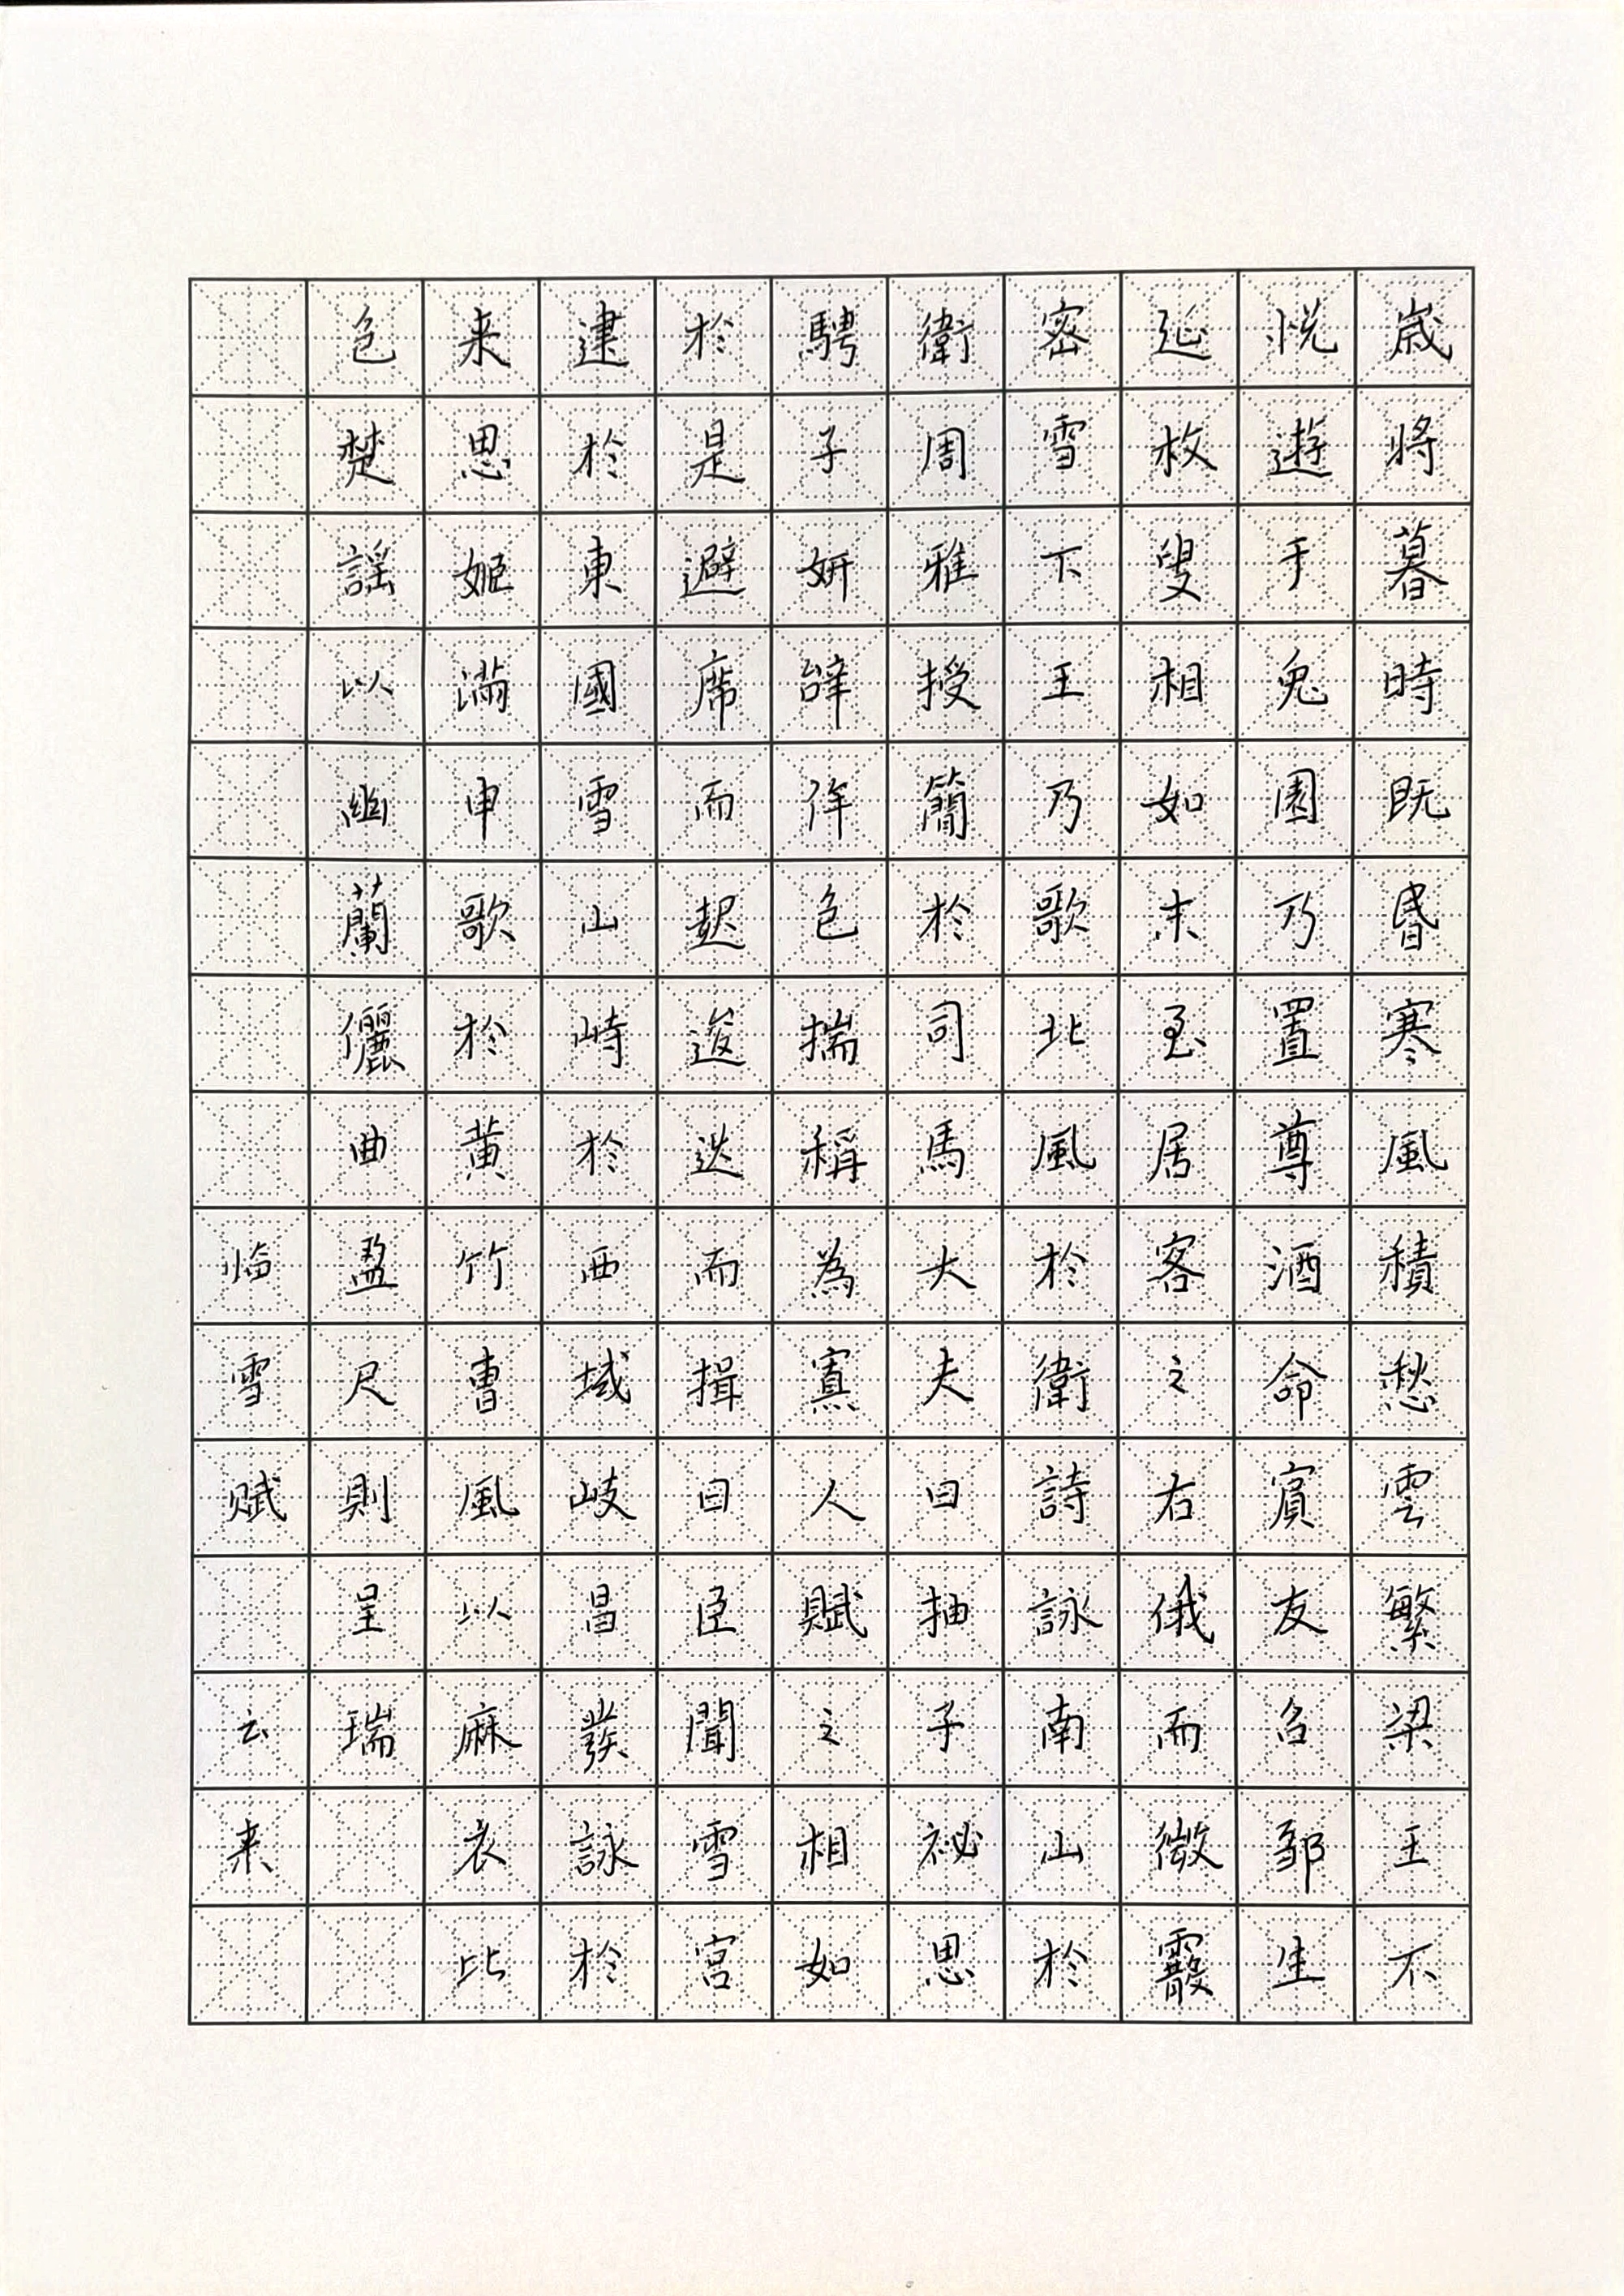 嵗將暮時既昏寒風積愁雲繁梁王不
悦遊于兔園乃置尊酒命賓友召鄒生
延枚叟相如末至居客之右俄而微霰
密雪下王乃歌北風於衛詩詠南山於
衛周雅授簡於司馬大夫曰抽子祕思
騁子妍辝侔色揣稱為寡人賦之相如
於是避席而起逡迭而揖曰臣聞雪宮
建於東國雪山峙於西域岐昌發詠於
来思姬滿申歌於黄竹曹風以麻衣比
色楚謠以幽蘭儷曲盈尺則呈瑞
临雪赋 云来